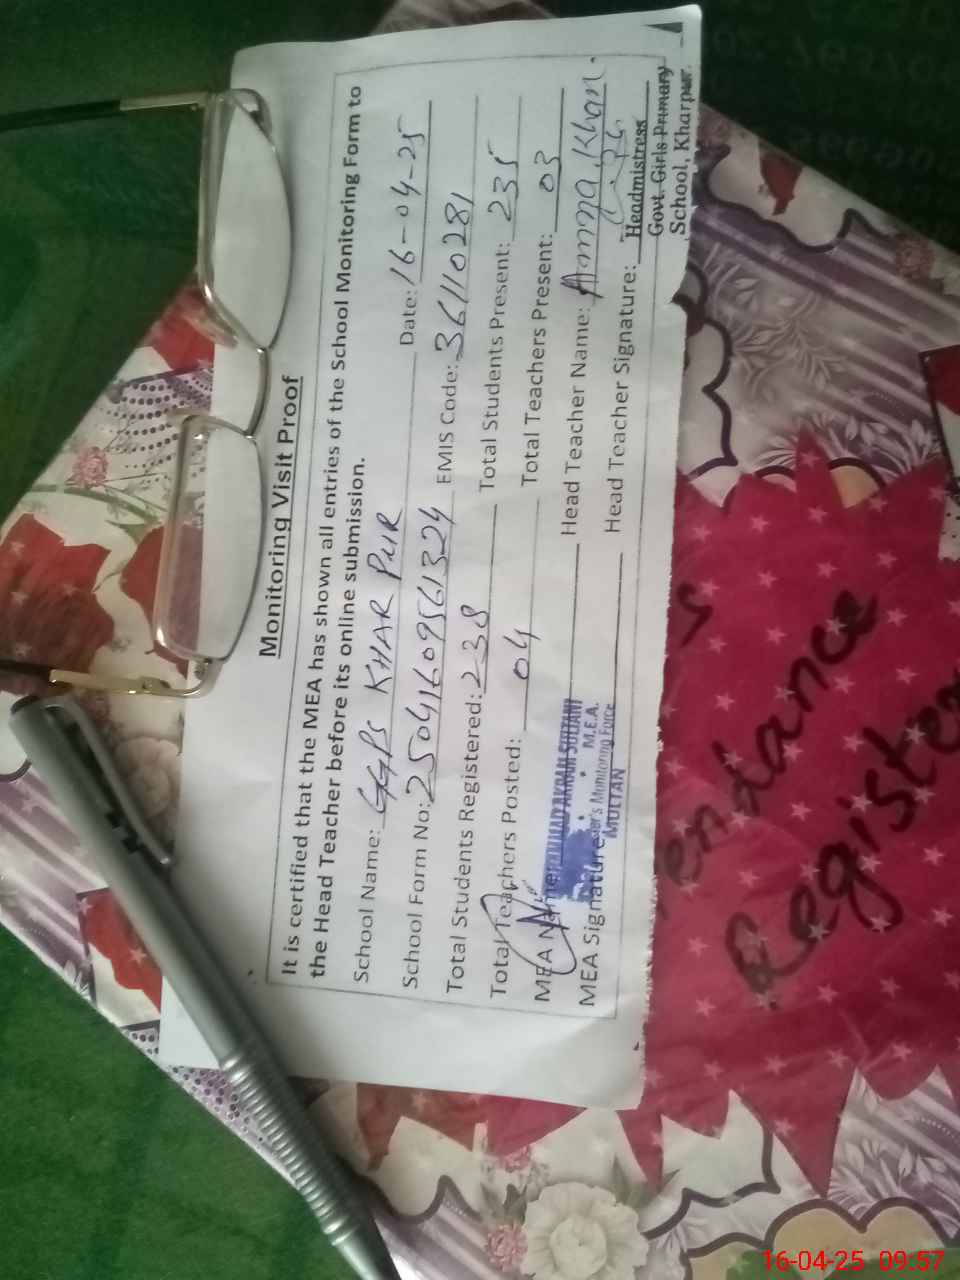 Monitoring Visit Proof
It is certified that the MEA has shown all entries of the School Monitoring Form to
the Head Teacher before its online submission.
School Name: GGPS KHAR PUR Date: 16-04-25
School Form No: 25041609561324 EMIS Code: 36110281
Total Students Registered: 238 Total Students Present: 235
Total Teachers Posted: 04 Total Teachers Present: 03
MEA Name: AKRAM SULTANI Head Teacher Name: Amna Khan.
M.E.A.
MEA Signature Monitoring Force Head Teacher Signature:
MULTAN
Headmistress
Govt. Girls Primary
School, Kharpur
endance
Register
16-04-25 09:57